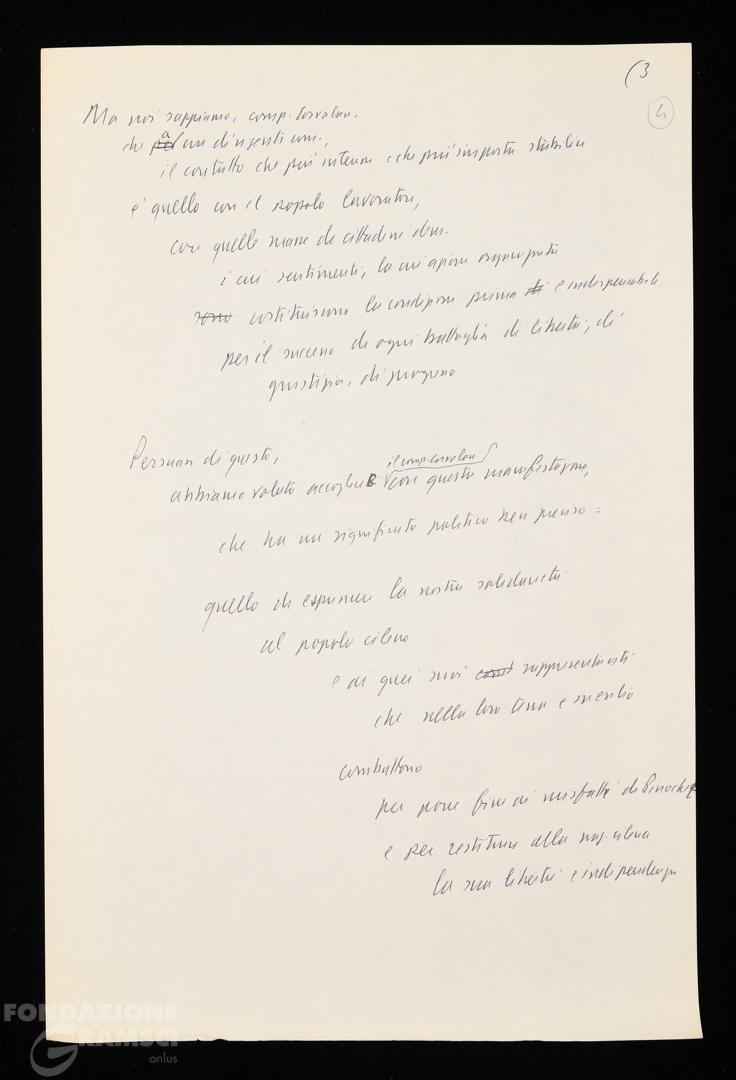 (3
4
Ma noi sappiamo, comp. Corvalan,
che per a un dirigente com.,
il contatto che più intenso e che più importa stabilire
è quello con il popolo lavoratore,
con quelle masse di cittadini dem.
i cui sentimenti, la cui azione
sono costituiscono la condizione prima di e indispensabile
per il successo di ogni battaglia di libertà, di
giustizia, di progresso
Persuasi di questo,
il comp. Corvalan
abbiamo voluto accogliere con questa manifestazione,
che ha un significato politico ben preciso:
quello di esprimere la nostra solidarietà
al popolo cileno
e ai quei suoi rappresentanti
che nella loro terra e in esilio
combattono
per porre fine ai misfatti di Pinochet
e per restituire alla naz. cilena
la sua libertà e indipendenza
FONDAZIONE
GRAMSCI
onlus